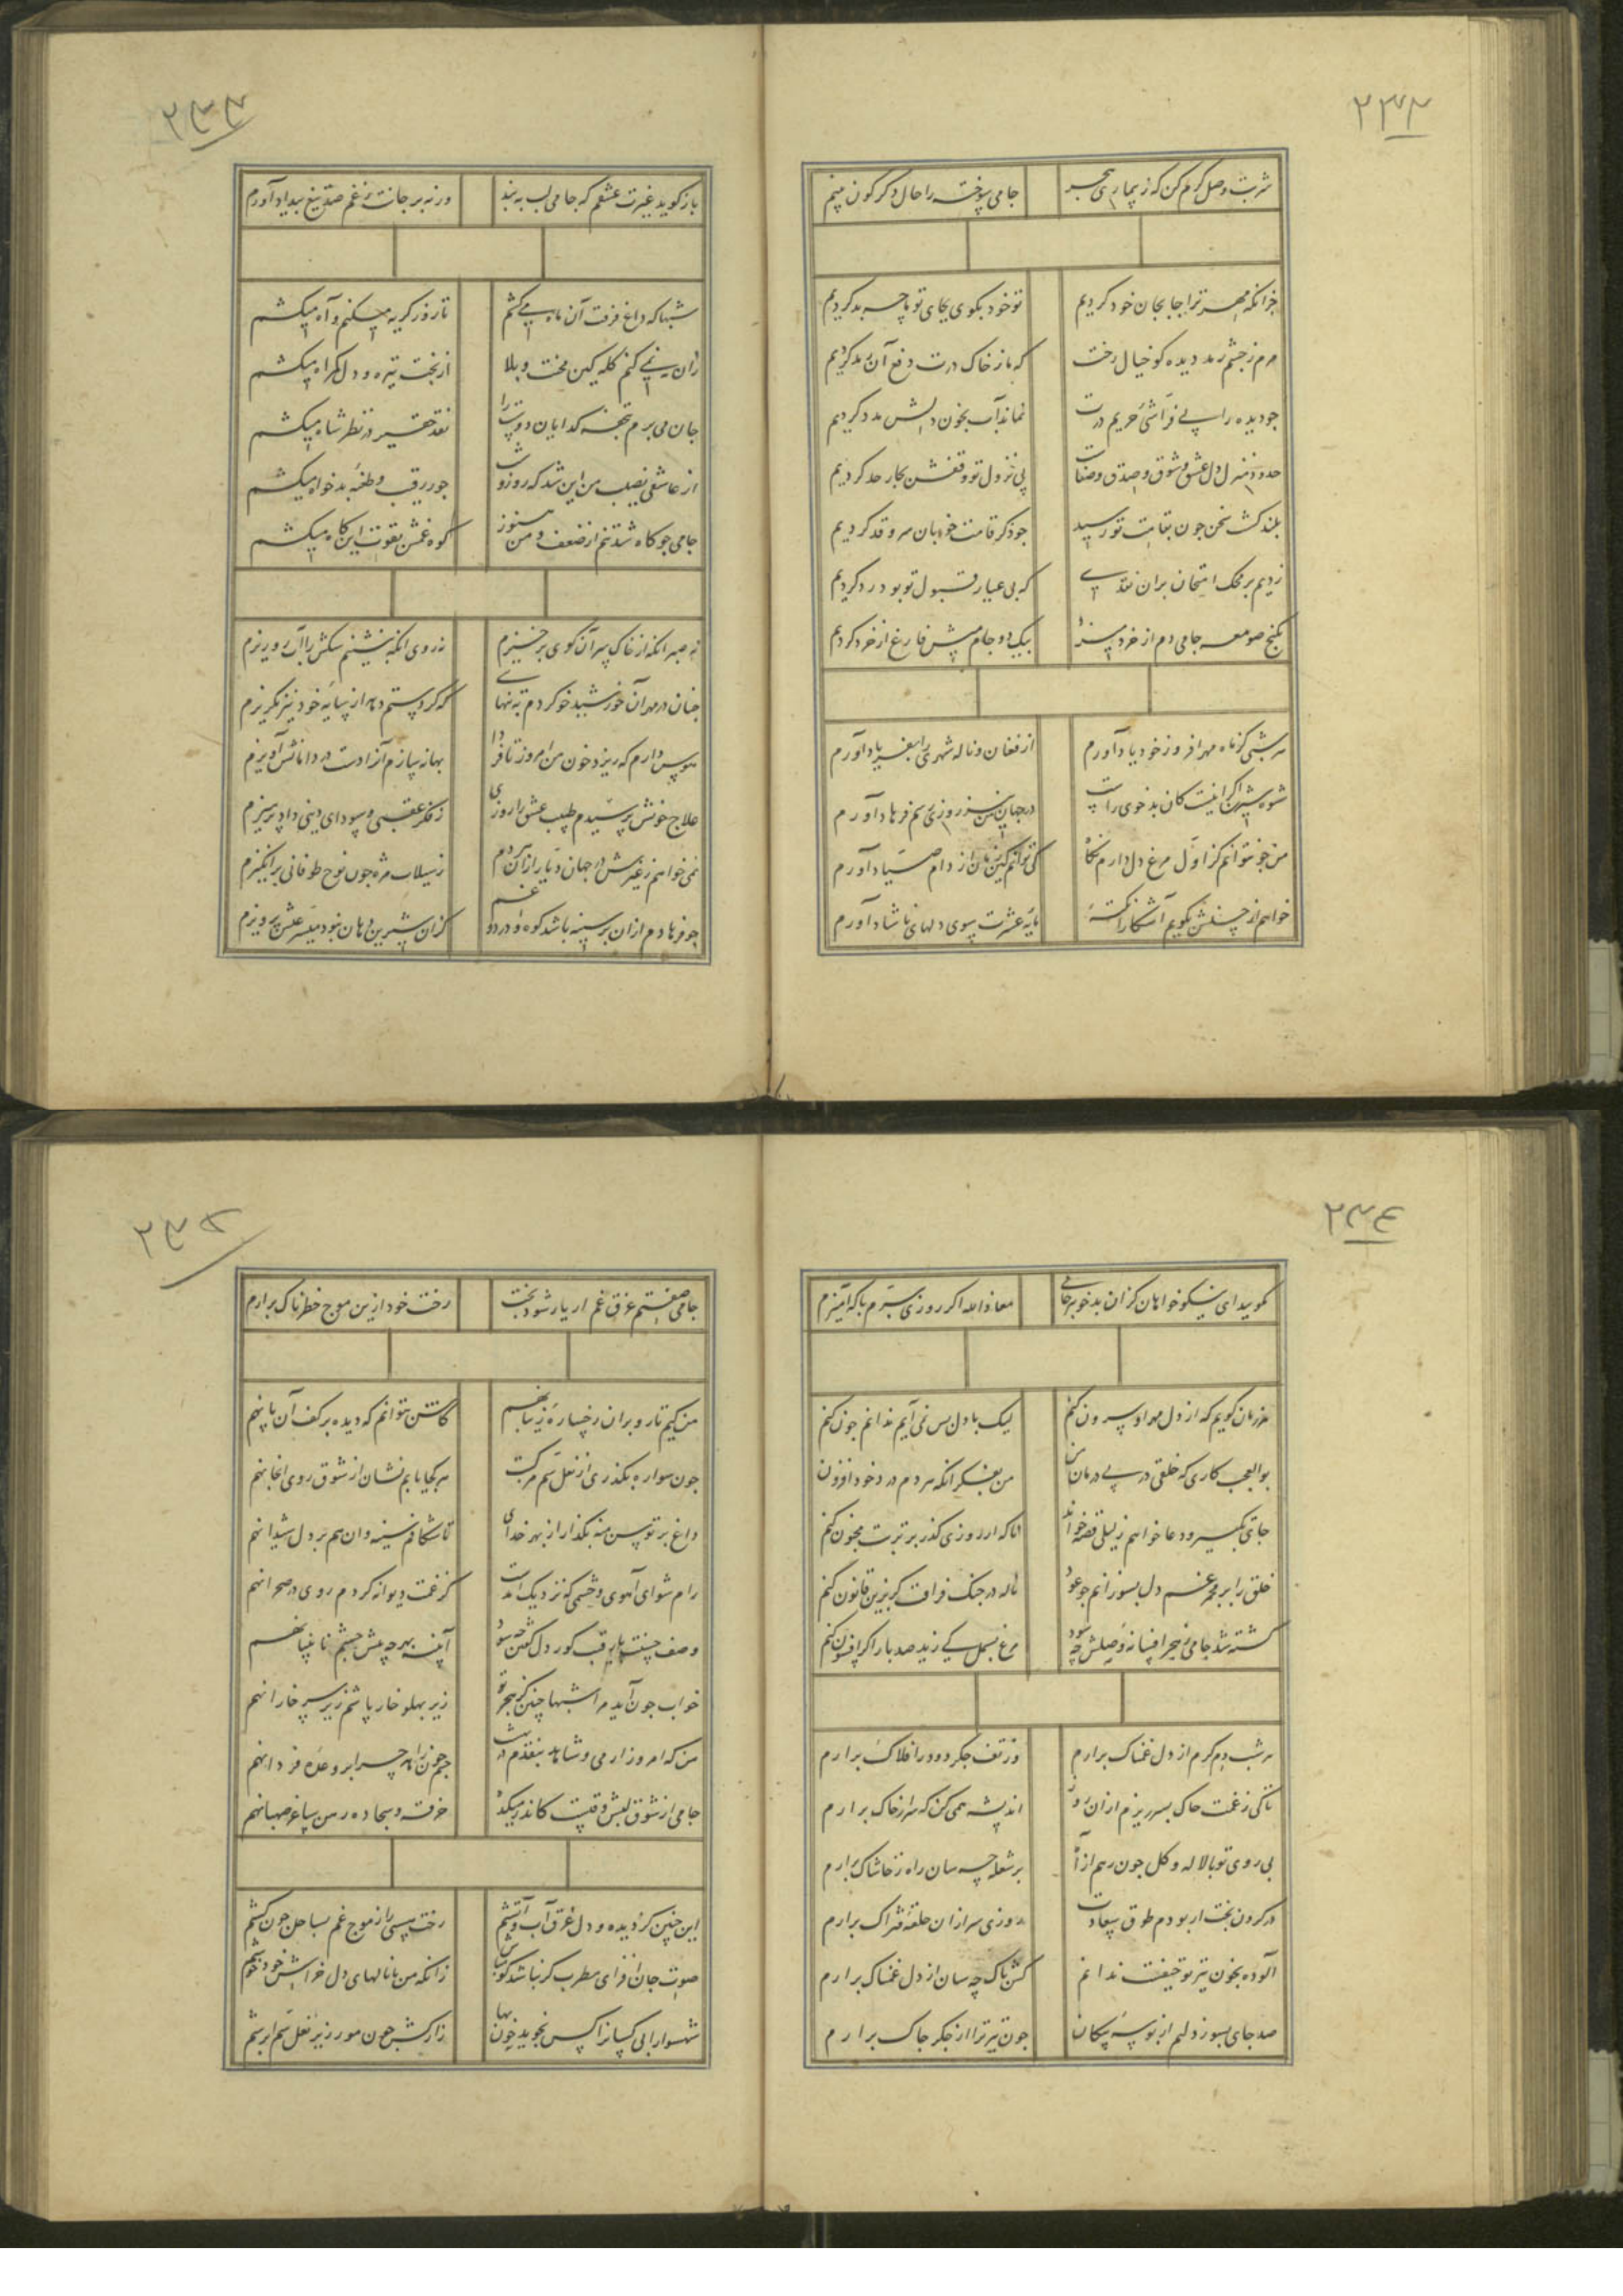 ۲۳۲
شربت وصل کرم کن که ز بیماری هجر جامی سوخته را حال دکرکون بینم
جزانکه مهر ترا جا بجان خود کردیم تو خود بکوی بجای تو ما چه بد کردیم
حرم ز چشم رمد دیده کو خیال رخت که ما ز خاک درت دفع آن رمد کردیم
جو دیده را پی فراشی حریم درت نماند آب بخون دلش مدد کردیم
حدود منزل دل عشق و شوق و صدق و صفات پی نزول تو وقفش بجار حد کردیم
بلند کشت سخن جون بقامت تو رسید جو ذکر قامت خوبان سرو قد کردیم
زدیم بر محک امتحان بران نقدی که بی عیار قبول تو بود رد کردیم
بکنج صومعه جامی دم از خرد میزد بیک دو جام میش فارغ از خرد کردیم
هر شبی کز ماه مهر افروز خود یاد آورم از فغان و ناله شهری را بفریاد آورم
شوه شیرین اکر اینست کان بدخوی راست در جهان من نیز روزی رسم فرهاد آورم
من جو نتوانم کز اول مرغ دل دارم نکاه کی توانم کین زمان از دام صیاد آورم
خواهم از حسنش بکویم آشکارا نکته مایه عشرت بسوی دلهای ناشاد آورم
۲۳۳
باز کوید غیرت عشقم که جامی لب به بند ورنه بر جانت ز غم صد تیغ بیداد آورم
شبها که داغ فرقت آن ماه می کشم تا روز کریه میکنم و آه میکشم
زان نی کنم کله کین محنت و بلا از بخت تیره و دل کمراه میکشم
جان می برم تحفه کدایان دوست را نقد حقیر در نظر شاه میکشم
از عاشقی نصیب من این شد که روز و شب جور رقیب و طعنه بدخواه میکشم
جامی جو کاه شد تنم از ضعف و من هنوز کوه غمش بقوت این کاه میکشم
نه صبر انکه از خاک سر آن کوی برخیزم نه روی انکه بنشینم سکش را آب رو ریزم
جنان در مهر آن خورشید خو کردم به تنهایی که کر دستم دهد از سایه خود نیز بکریزم
هوس دارم که ریزد خون من امروز تا فردا بهانه سازم آنرا دست در دامانش آویزم
علاج خویش پرسیدم طبیب عشق را روزی ز فکر عقبی و سودای دینی داد پرهیزم
نمی خواهم ز غیرش در جهان دیار ازان هر دم ز سیلاب مژه جون نوح طوفانی برانکیزم
جو فرهادم ازان بر سینه باشد کوه درد و غم کزان شیرین دهان نبود میسر عیش پرویزم
۲۳٤
مکویید ای نیکو خواهان کزان بدخو ببر جامی معاذ الله اکر روزی ببرم با که آمیزم
هر زمان کویم که از دل مهر او بیرون کنم لیک با دل بس نمی آیم ندانم جون کنم
بوالعجب کاری که خلقی در پی درمان من من بفکر انکه هر دم درد خود افزون کنم
جای تکبیر و دعا خواهم ز لیلی قصه خواند اناکه ار روزی کذر بر تربت مجنون کنم
خلق را بر مجمر غم دل بسوزانم جو عود ناله در جنک فراقت کر بدین قانون کنم
کشته شد جامی ز هجر افسانه وصلش چه سود مرغ بسمل کی زید صد بار اکر افسون کنم
هر شب دم کرم از دل غمناک برارم وز تف جکر دود ر افلاک برارم
تا کی ز غمت خاک بسر ریزم ازان روز اندیشه همی کن که سر از خاک برارم
بی روی تو با لاله و کل جون رهم از آه بر شعله چه سان راه ز خاشاک برارم
در کردن بخت ار بودم طوق سعادت روزی سر ازان حلقه فتراک برارم
آلوده بخون تیر تو حیفست ندانم کش پاک چه سان از دل غمناک برارم
صد جای بسوزد دلم از نو سه پیکان جون تیر ترا از جکر چاک برارم
۲۳۵
جامی صفتم غرق غم ار یار شود بخت رخت خود ازین موج خطرناک برارم
من کیم تا رو بران رخساره زیبا نهم کاشتن بتوانم که دیده بر کف آن پا نهم
جون سواره بکذری از نعل سم مرکبت هر کجا یابم نشان از شوق روی انجا نهم
داغ بر توسن منه بکذار از بهر خدای تا شکافم سینه وان هم بر دل شیدا نهم
رام شو ای آهوی وحشی که نزدیک آمدست کز غمت دیوانه کردم روی در صحرا نهم
وصف حسنت با رقیب کور دل کفتن چه سود آینه بهر چه پیش چشم نابینا نهم
خواب جون آید مرا شبها چنین کز هجر تو زیر پهلو خار پاشم زیر سر خارا نهم
من که امروز ار می و شاهد بنقدم در بهشت جرعون زاهد چرا بر وعده فردا نهم
جامی از شوق لبش وقتیست کاندر میکده خرقه و سجاده رهن ساغر صهبا نهم
این چنین کز دیده و دل غرق آب و آتشم رخت هستی را ز موج غم بساحل جون کشم
صوت جان افزای مطرب کر نباشد کو مباش زانکه من با نالهای دل خراش خود خوشم
شهسوارا بی کسانرا کس نجوید خون بها زار کش جون مور زیر نعل سم ابرشم